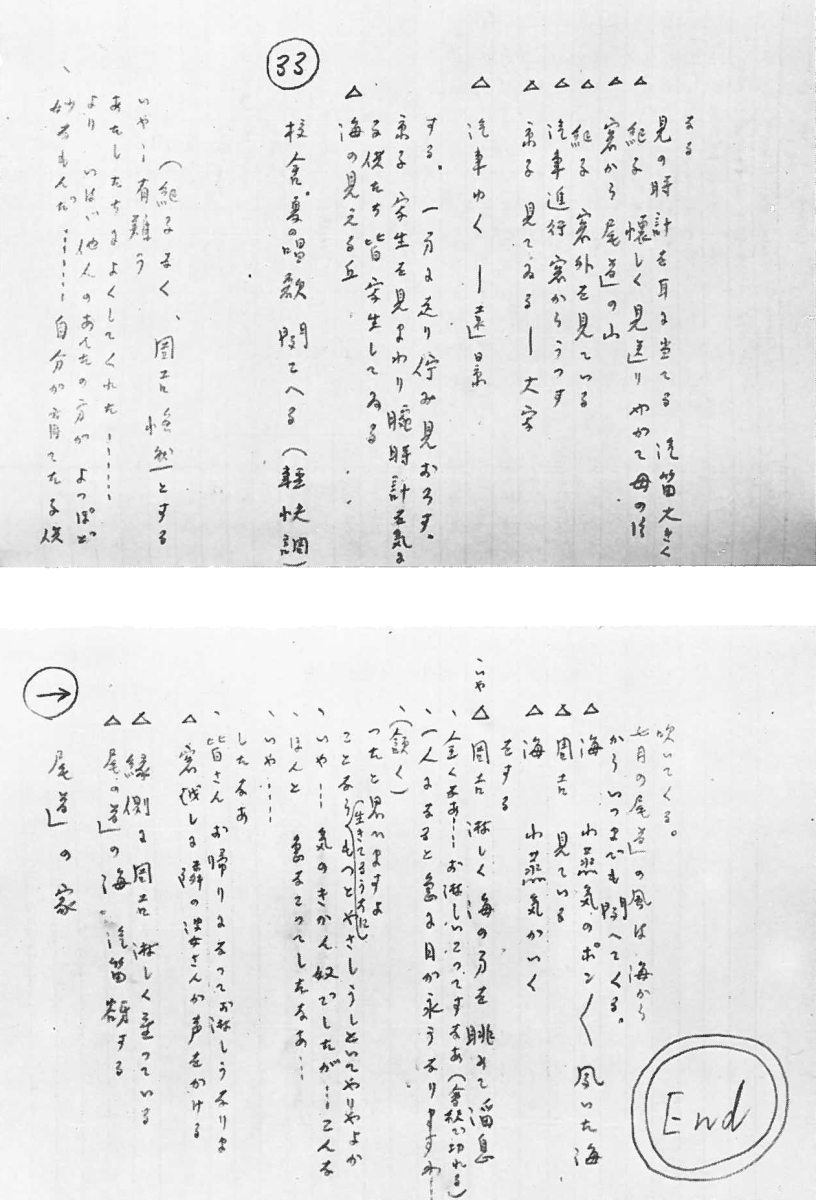 、妙なもんだ……自分が育てた子供
より いはゞ他人のあんたの方が よっぽど
あたしたちによくしてくれた……
いやー有難う
(紀子なく、周吉憮然とする
33
校舎。夏の唱歌 聞こへる(軽快調)
△ 海の見える丘
子供たち皆写生してゐる
京子 学生を見まわり 腕時計を気に
する。一方に送り佇み見おろす。
△ 汽車ゆく ー遠景
△ 京子 見てゐるー大写
△ 汽車進行 窓からうつす
△ 紀子 窓外を見ている
△ 窓から 尾道の山
△ 紀子 懐しく見送り やがて母の形
見の時計を耳に当てる 汽笛大きく
なる
→
尾道の家
△ 尾の道の海 汽笛
△ 縁側に周吉 淋しく坐っている
△ 窓越しに隣の細君さんが声をかける
、皆さんお帰りになってお淋しうなりま
したなあ
、いや…
、ほんと 急なこってしたなあ…
、いや… 気のきかん奴でしたが… こんな
ことなら(生きてるうちに)もっとやさしうしといてやりゃよか
ったと思いますよ
、(頷く)
、一人になると急に日が永うなりますわ…
、全くなあ… お淋しいこってすなあ(会話切れる)
いや
△ 周吉 淋しく海の方を眺めて溜息
をする
△ 海 小蒸気がいく
△ 周吉 見ている
△ 海 小蒸気のポン〱 凪いた海
からいつまでも聞へてくる。
七月の尾道の風は海から
吹いてくる。
End